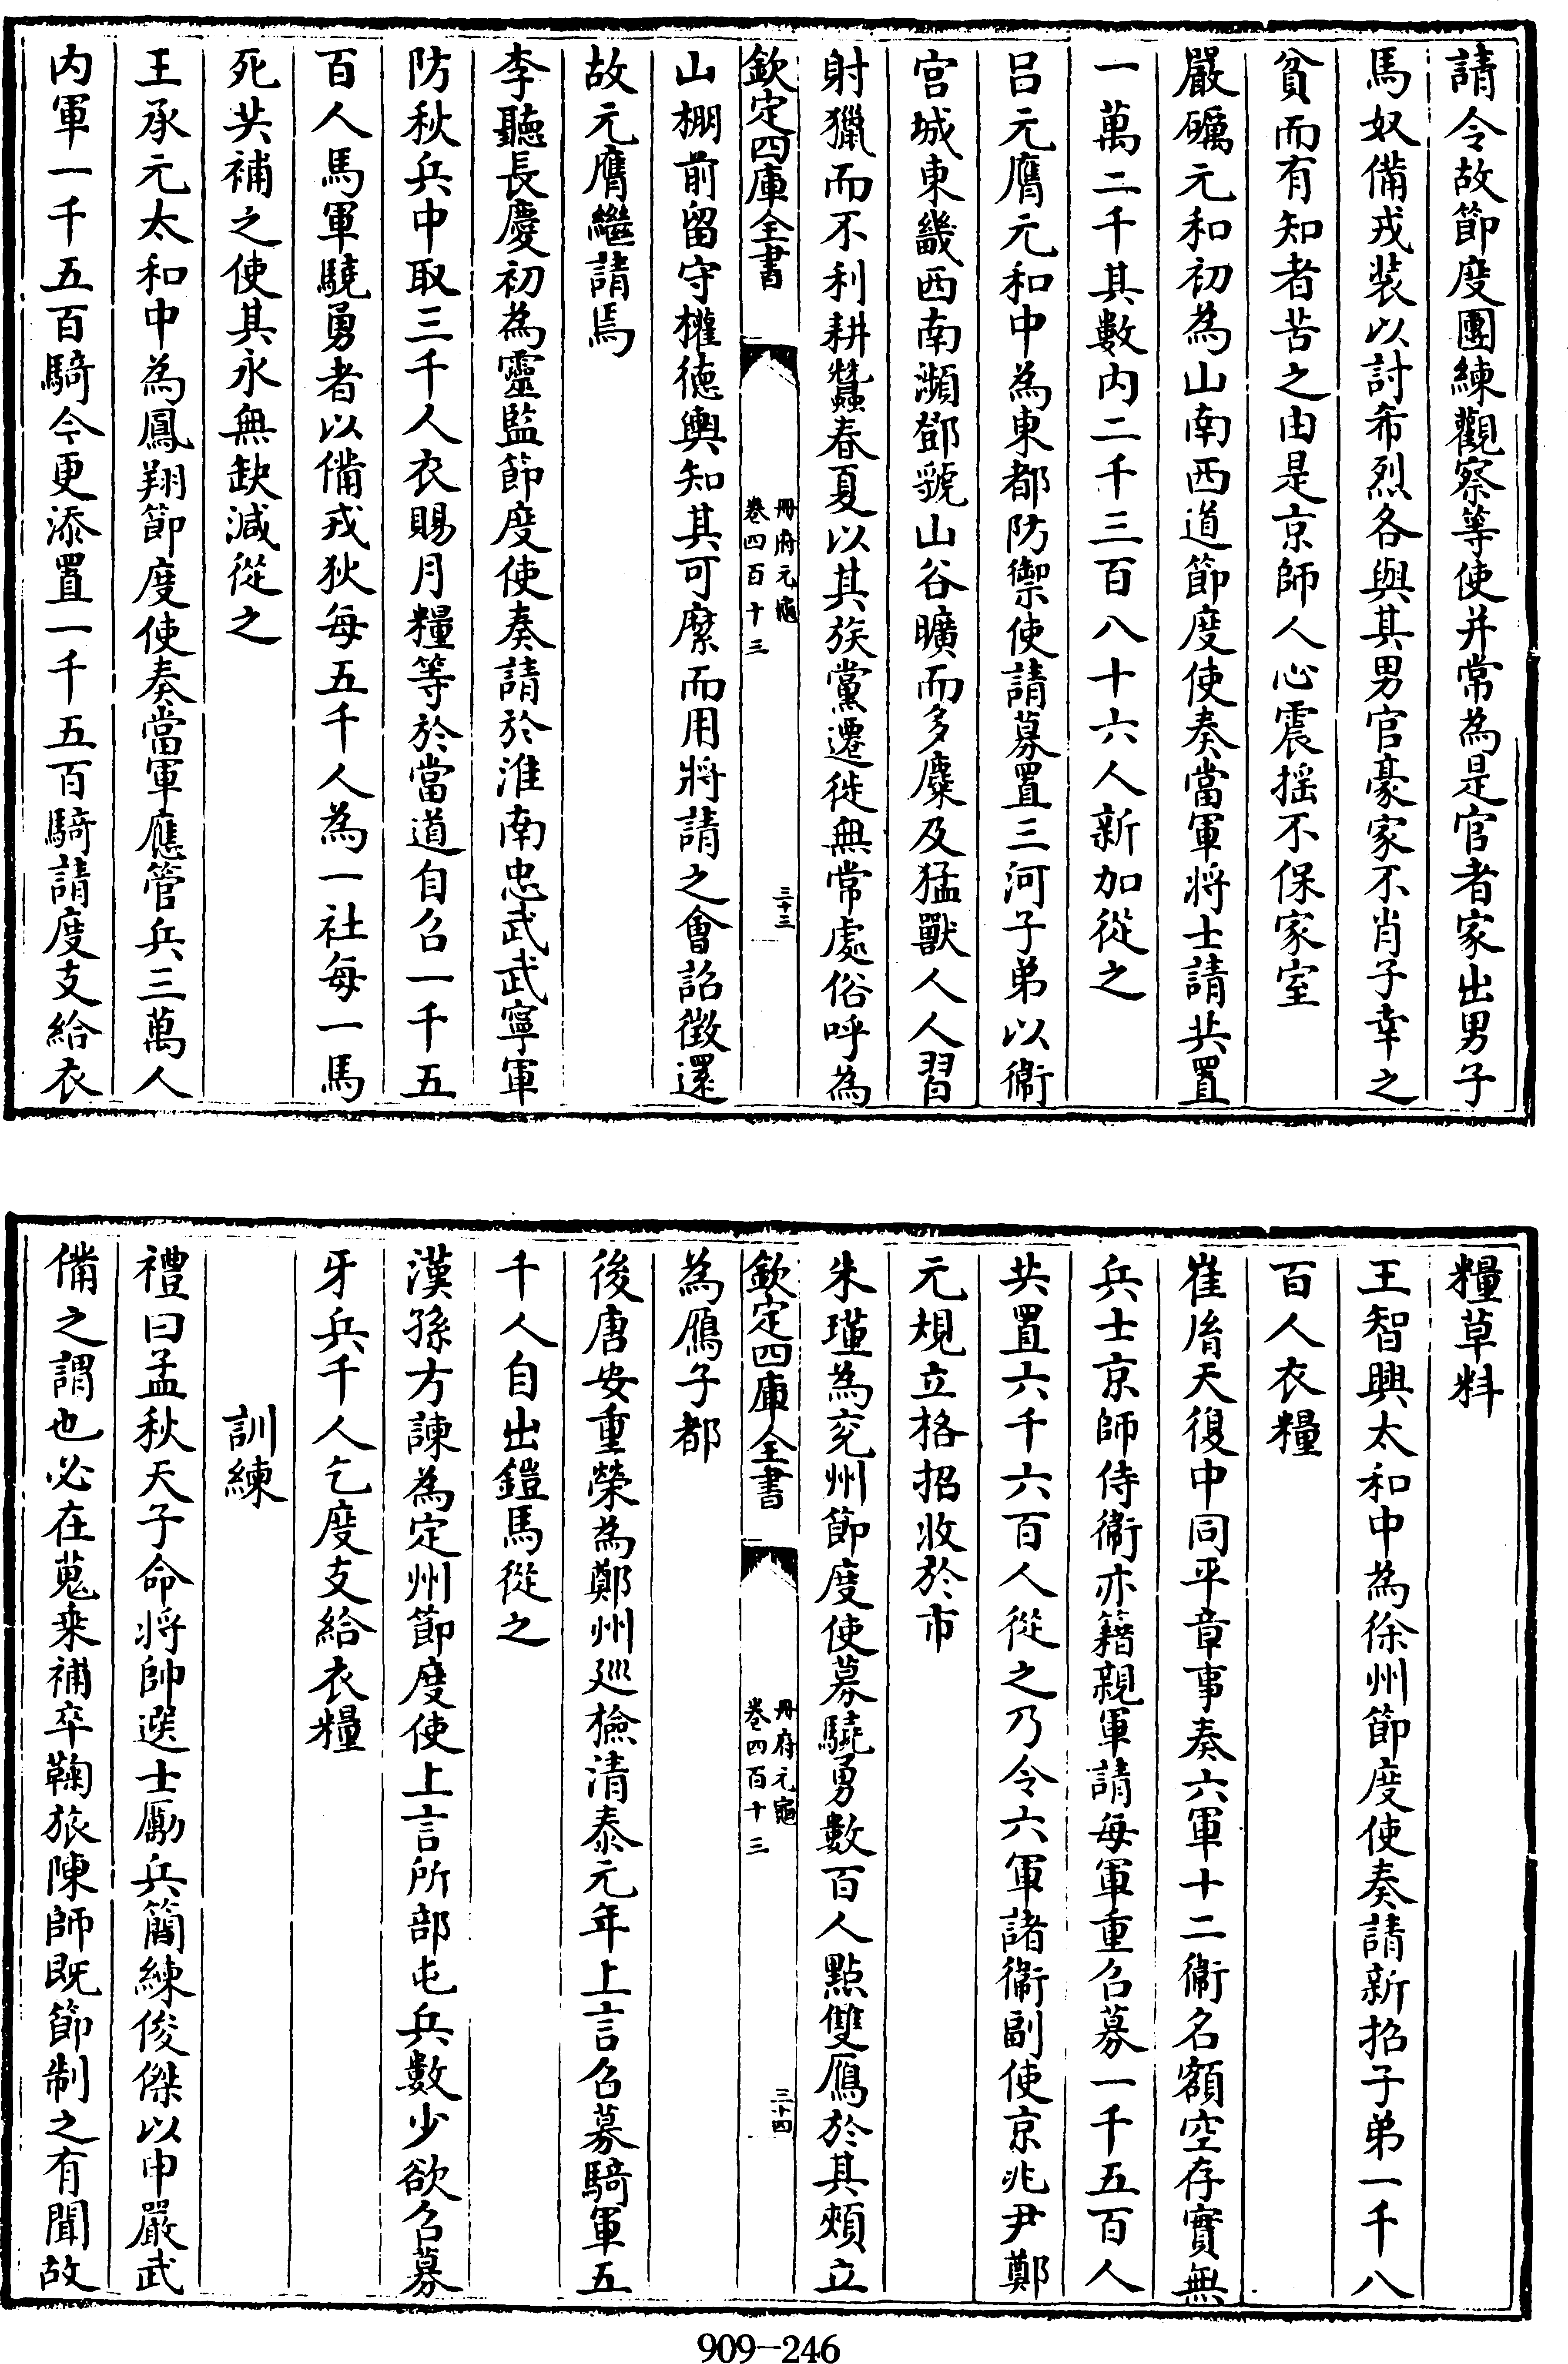 請令故節度團練觀察等使并常為是官者家出男子
馬奴備戎裝以討希烈各與其男官豪家不肖子幸之
貧而有知者苦之由是京師人心震揺不保家室
嚴礪元和初為山南西道節度使奏當軍将士請共置
一萬二千其數内二千三百八十六人新加從之
吕元膺元和中為東都防禦使請募置三河子弟以衞
宫城東畿西南瀕鄧虢山谷曠而多麋及猛獸人人習
射獵而不利耕蠶春夏以其族黨遷徙無常處俗呼為
欽定四庫全書
冊府元龜
卷四百十三
三十三
山棚前留守權德輿知其可縻而用將請之會詔徴還
故元膺繼請焉
李聽長慶初為靈監節度使奏請於淮南忠武武寧軍
防秋兵中取三千人衣賜月糧等於當道自召一千五
百人馬軍驍勇者以備戎狄每五千人為一社每一馬
死共補之使其永無缺減從之
王承元太和中為鳳翔節度使奏當軍應管兵三萬人
内軍一千五百騎今更添置一千五百騎請度支給衣
糧草料
王智興太和中為徐州節度使奏請新招子弟一千八
百人衣糧
崔胤天復中同平章事奏六軍十二衞名額空存實無
兵士京師侍衞亦籍親軍請每軍重召募一千五百人
共置六千六百人從之乃令六軍諸衞副使京兆尹鄭
元規立格招收於市
朱瑾為兖州節度使募驍勇數百人點雙鴈於其頰立
欽定四庫全書
冊府元龜
卷四百十三
三十四
為鴈子都
後唐安重榮為鄭州廵檢清泰元年上言召募騎軍五
千人自出鎧馬從之
漢孫方諫為定州節度使上言所部屯兵數少欲召募
牙兵千人乞度支給衣糧
訓練
禮曰孟秋天子命将帥選士厲兵簡練俊傑以申嚴武
備之謂也必在蒐乗補卒鞠旅陳師既節制之有聞故
909-246